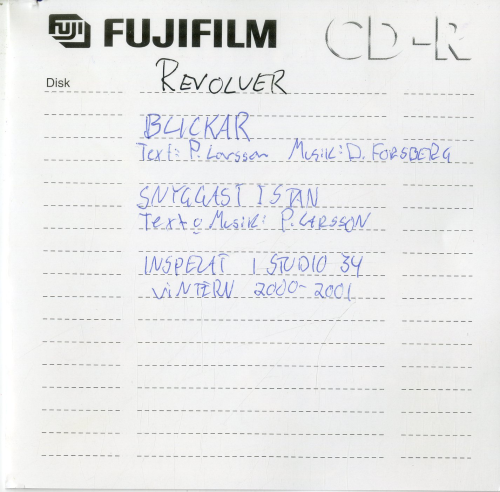 FUJI FUJIFILM CD-R
Disk REVOLVER
BLICKAR
Text: P. Larsson Musik: D. FORSBERG
SNYGGAST I STAN
Text o Musik: P. LARSSON
INSPELAT I STUDIO 34
VINTERN 2000-2001